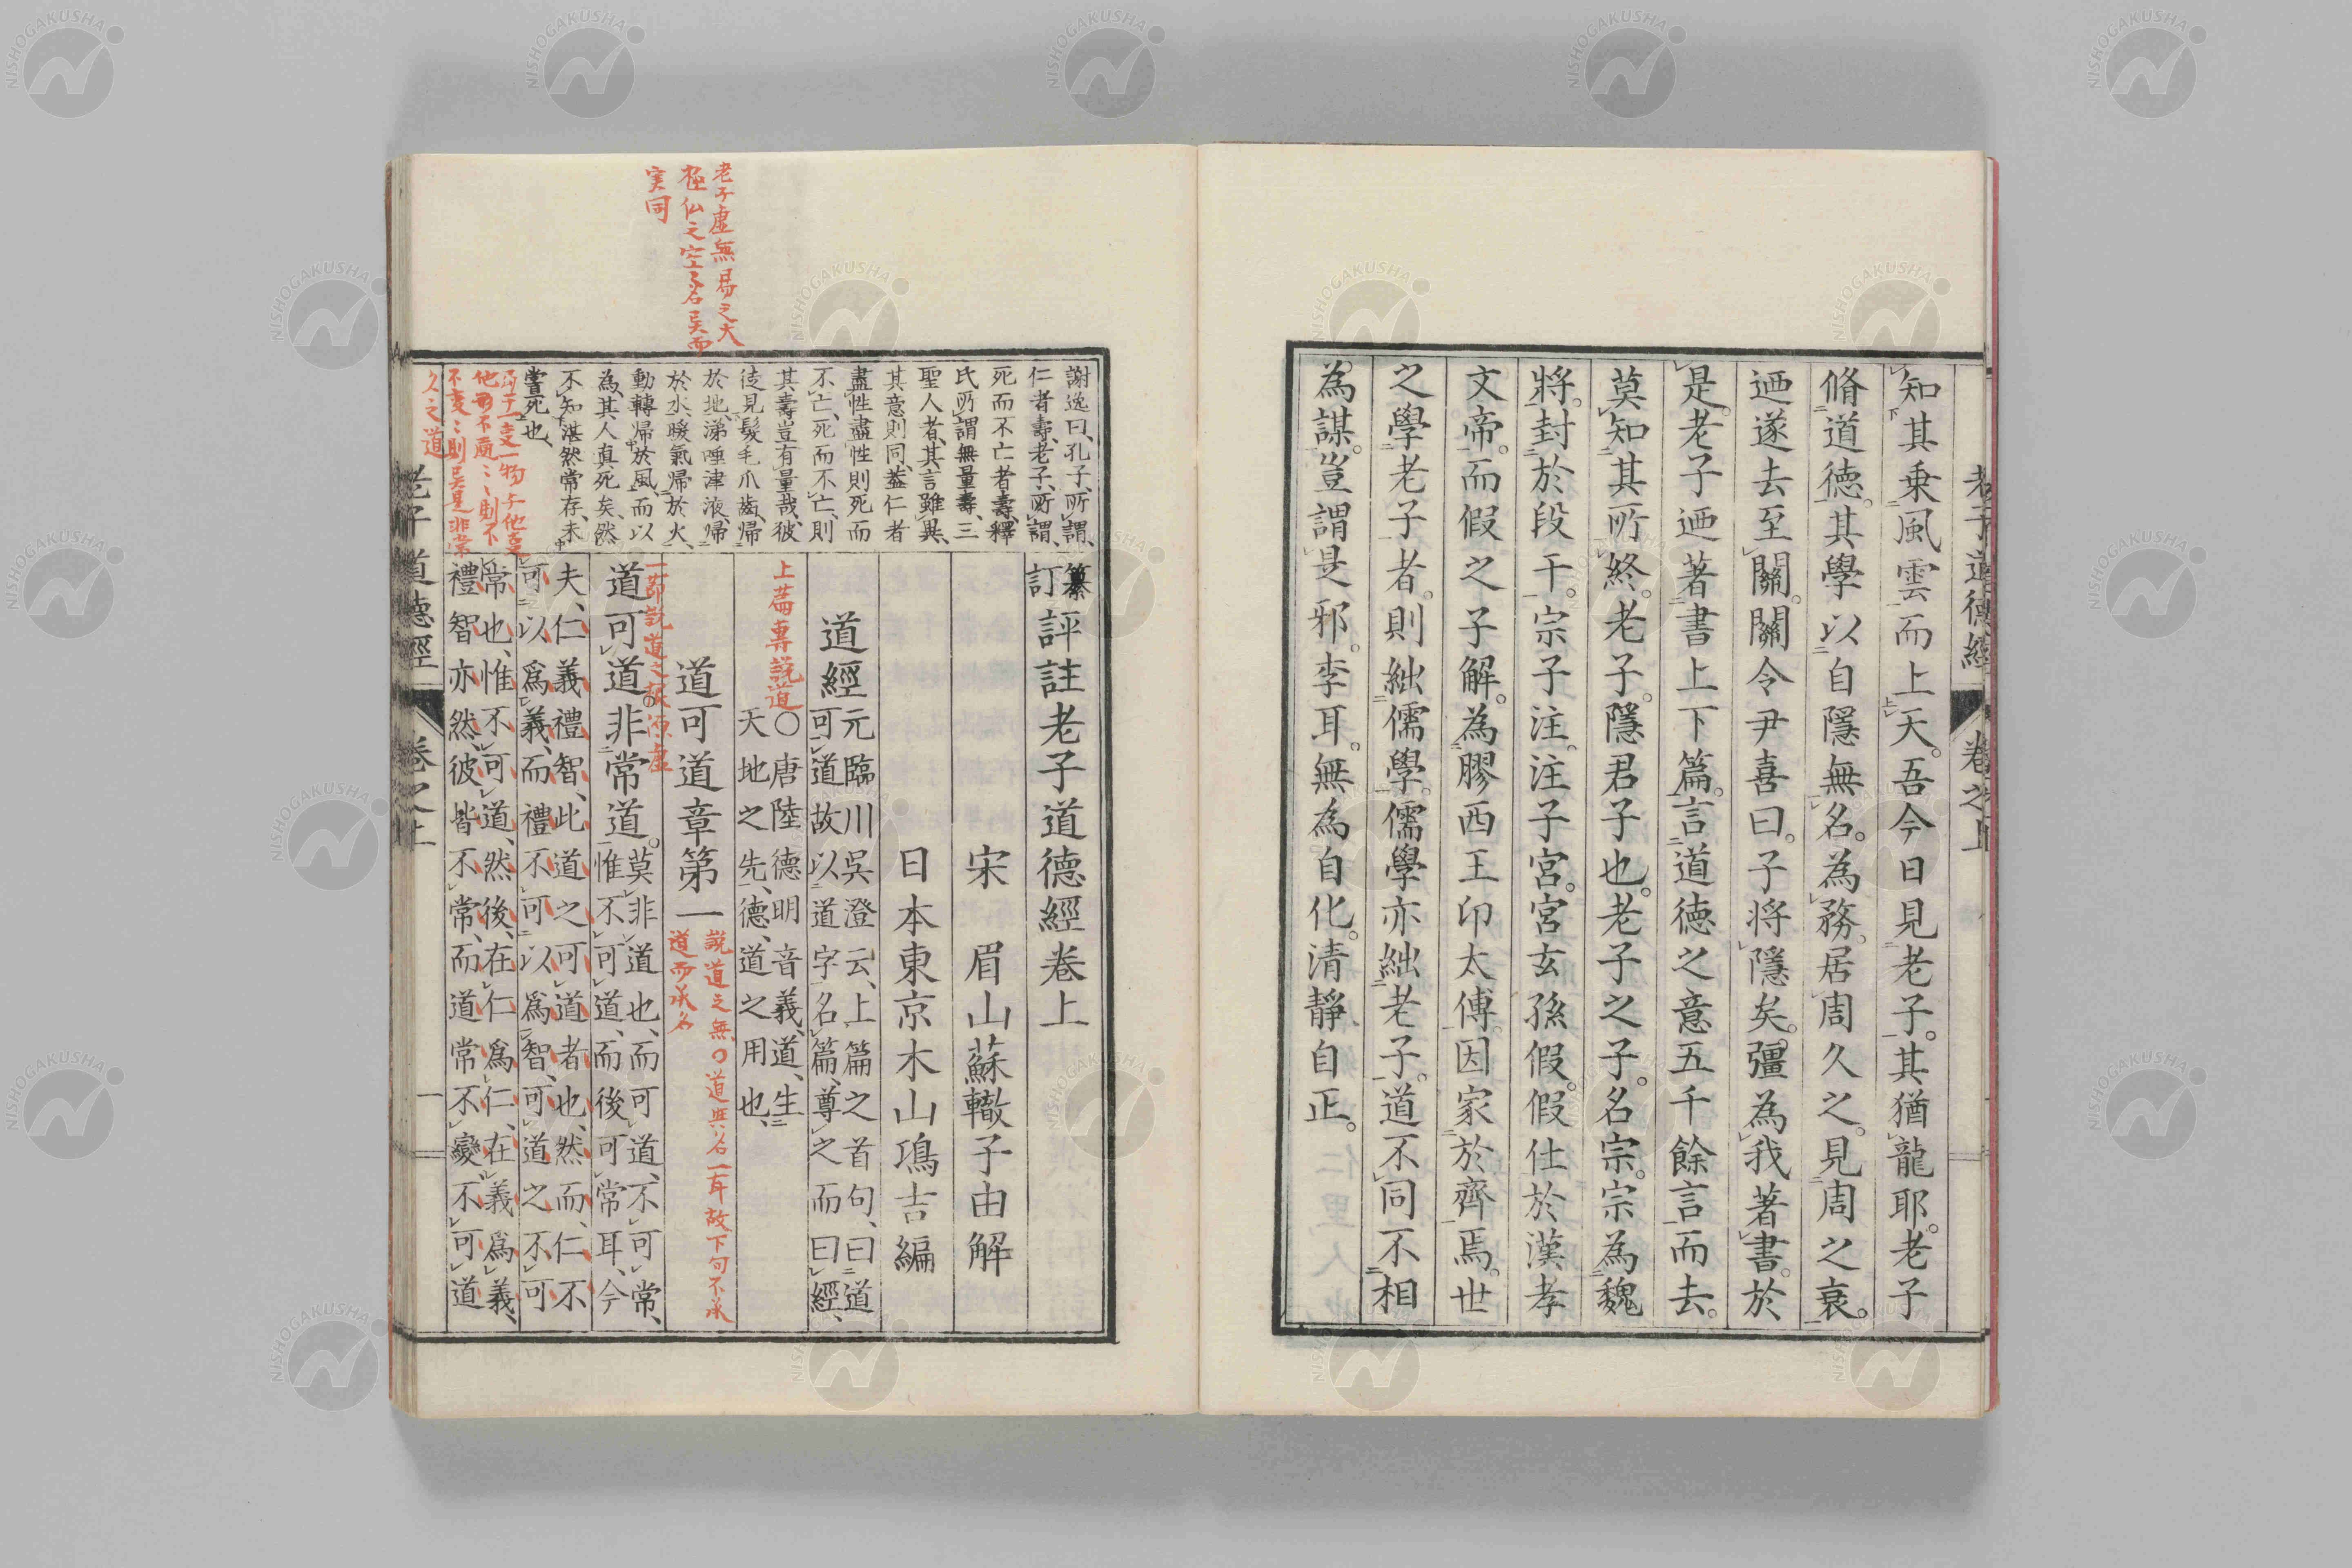 老子道德經
卷之上
知其乗風雲而上天。吾今日見老子。其猶龍耶。老子
脩道德。其學以自隱無名。為務。居周久之。見周之衰。
迺遂去至關。關令尹喜曰。子将隱矣。彊為我著書。於
是。老子迺著書上下篇。言道德之意五千餘言而去。
莫知其所終。老子。隱君子也。老子之子。名宗。宗為魏
將。封於段干。宗子注。注子宮。宮玄孫假。假仕於漢孝
文帝。而假之子解。為膠西王卬太傅。因家於齊焉。世
之學老子者。則絀儒學。儒學亦絀老子。道不同不相
為謀。豈謂是邪。李耳。無為自化。清靜自正。
謝逸曰、孔子、所謂、
仁者壽、老子、所謂、
死而不亡者壽、釋
氏所謂無量壽、三
聖人者、其言雖異、
其意則同、蓋仁者
盡性盡性則死而
不亡、死而不亡、則
其壽豈有量哉、彼
徒見髮毛爪齒、歸
於地、涕唾津液、歸
於水、暖氣歸於火、
動轉歸於風、而以
為、其人真死矣、然
不知湛然常存、未
嘗死也、
老子虛無易之大
極仏之空名異而
実同
纂訂評註老子道德經卷上
宋 眉山蘇轍子由解
日本東京木山鴻吉編
道經 元臨川吳澄云、上篇之首句、曰道
可道故以道字名篇、尊之而曰經、
上篇專説道
〇唐陸德明音義、道、生
天地之先、德、道之用也、
道可道章第一
説道之無〇道與名一耳故下句不承
道而承名
道可道。非常道。莫非道也、而可道、不可常、
惟不可道、而後可常耳、今
一節説道之
夫、仁義禮智、此道之可道者也、然而、仁不
可以爲義、而禮不可以爲智、可道之不可
常也、惟不可道、然後、在仁爲仁、在義爲義、
禮智亦然、彼皆不常、而道常不變、不可道
他物不
久之道
老子道德經
卷之上
一
NISHOGAKUSHA